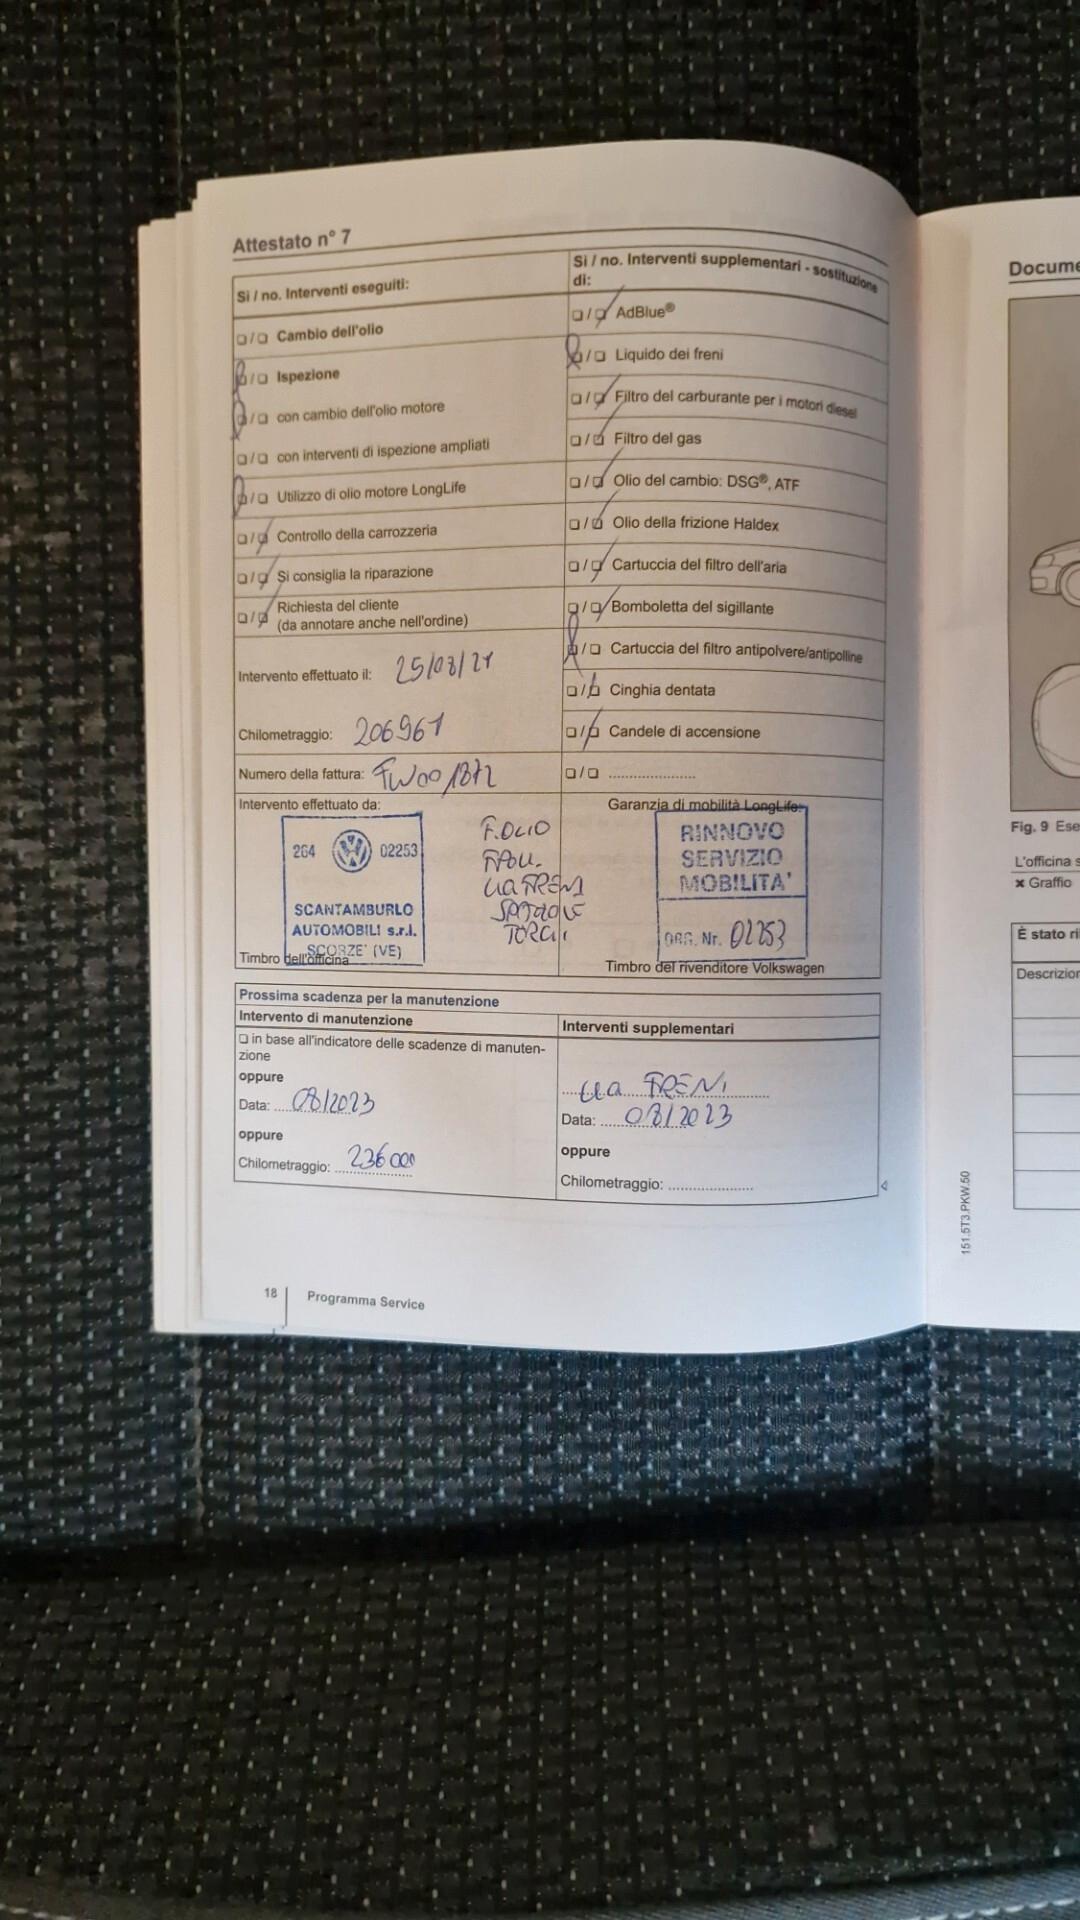 Attestato n° 7
Sì / no. Interventi eseguiti:
❏ / ❏ Cambio dell'olio
❏ / ❏ Ispezione
❏ / ❏ con cambio dell'olio motore
❏ / ❏ con interventi di ispezione ampliati
❏ / ❏ Utilizzo di olio motore LongLife
❏ / ❏ Controllo della carrozzeria
❏ / ❏ Si consiglia la riparazione
❏ / ❏ Richiesta del cliente
(da annotare anche nell'ordine)
Intervento effettuato il: 25/08/21
Chilometraggio: 206961
Numero della fattura: FW00/1872
Intervento effettuato da:
264 02253
SCANTAMBURLO
AUTOMOBILI s.r.l.
SCORZE' (VE)
Timbro dell'officina
F.OLIO
FPOLL.
LIQ FRENI
SPAZZOLE
Sì / no. Interventi supplementari - sostituzione
di:
❏ / ❏ AdBlue®
❏ / ❏ Liquido dei freni
❏ / ❏ Filtro del carburante per i motori diesel
❏ / ❏ Filtro del gas
❏ / ❏ Olio del cambio: DSG®, ATF
❏ / ❏ Olio della frizione Haldex
❏ / ❏ Cartuccia del filtro dell'aria
❏ / ❏ Bomboletta del sigillante
❏ / ❏ Cartuccia del filtro antipolvere/antipolline
❏ / ❏ Cinghia dentata
❏ / ❏ Candele di accensione
❏ / ❏ ....................
Garanzia di mobilità LongLife:
RINNOVO
SERVIZIO
MOBILITA'
ORG. Nr. 02253
Timbro del rivenditore Volkswagen
Prossima scadenza per la manutenzione
Intervento di manutenzione
❏ in base all'indicatore delle scadenze di manuten-
zione
oppure
Data: 08/2023
oppure
Chilometraggio: 236000
Interventi supplementari
LIQ FRENI
Data: 08/2023
oppure
Chilometraggio: ....................
18 Programma Service
151.5T3.PKW.50
Docume
Fig. 9 Ese
L'officina s
✖ Graffio
È stato ri
Descrizion